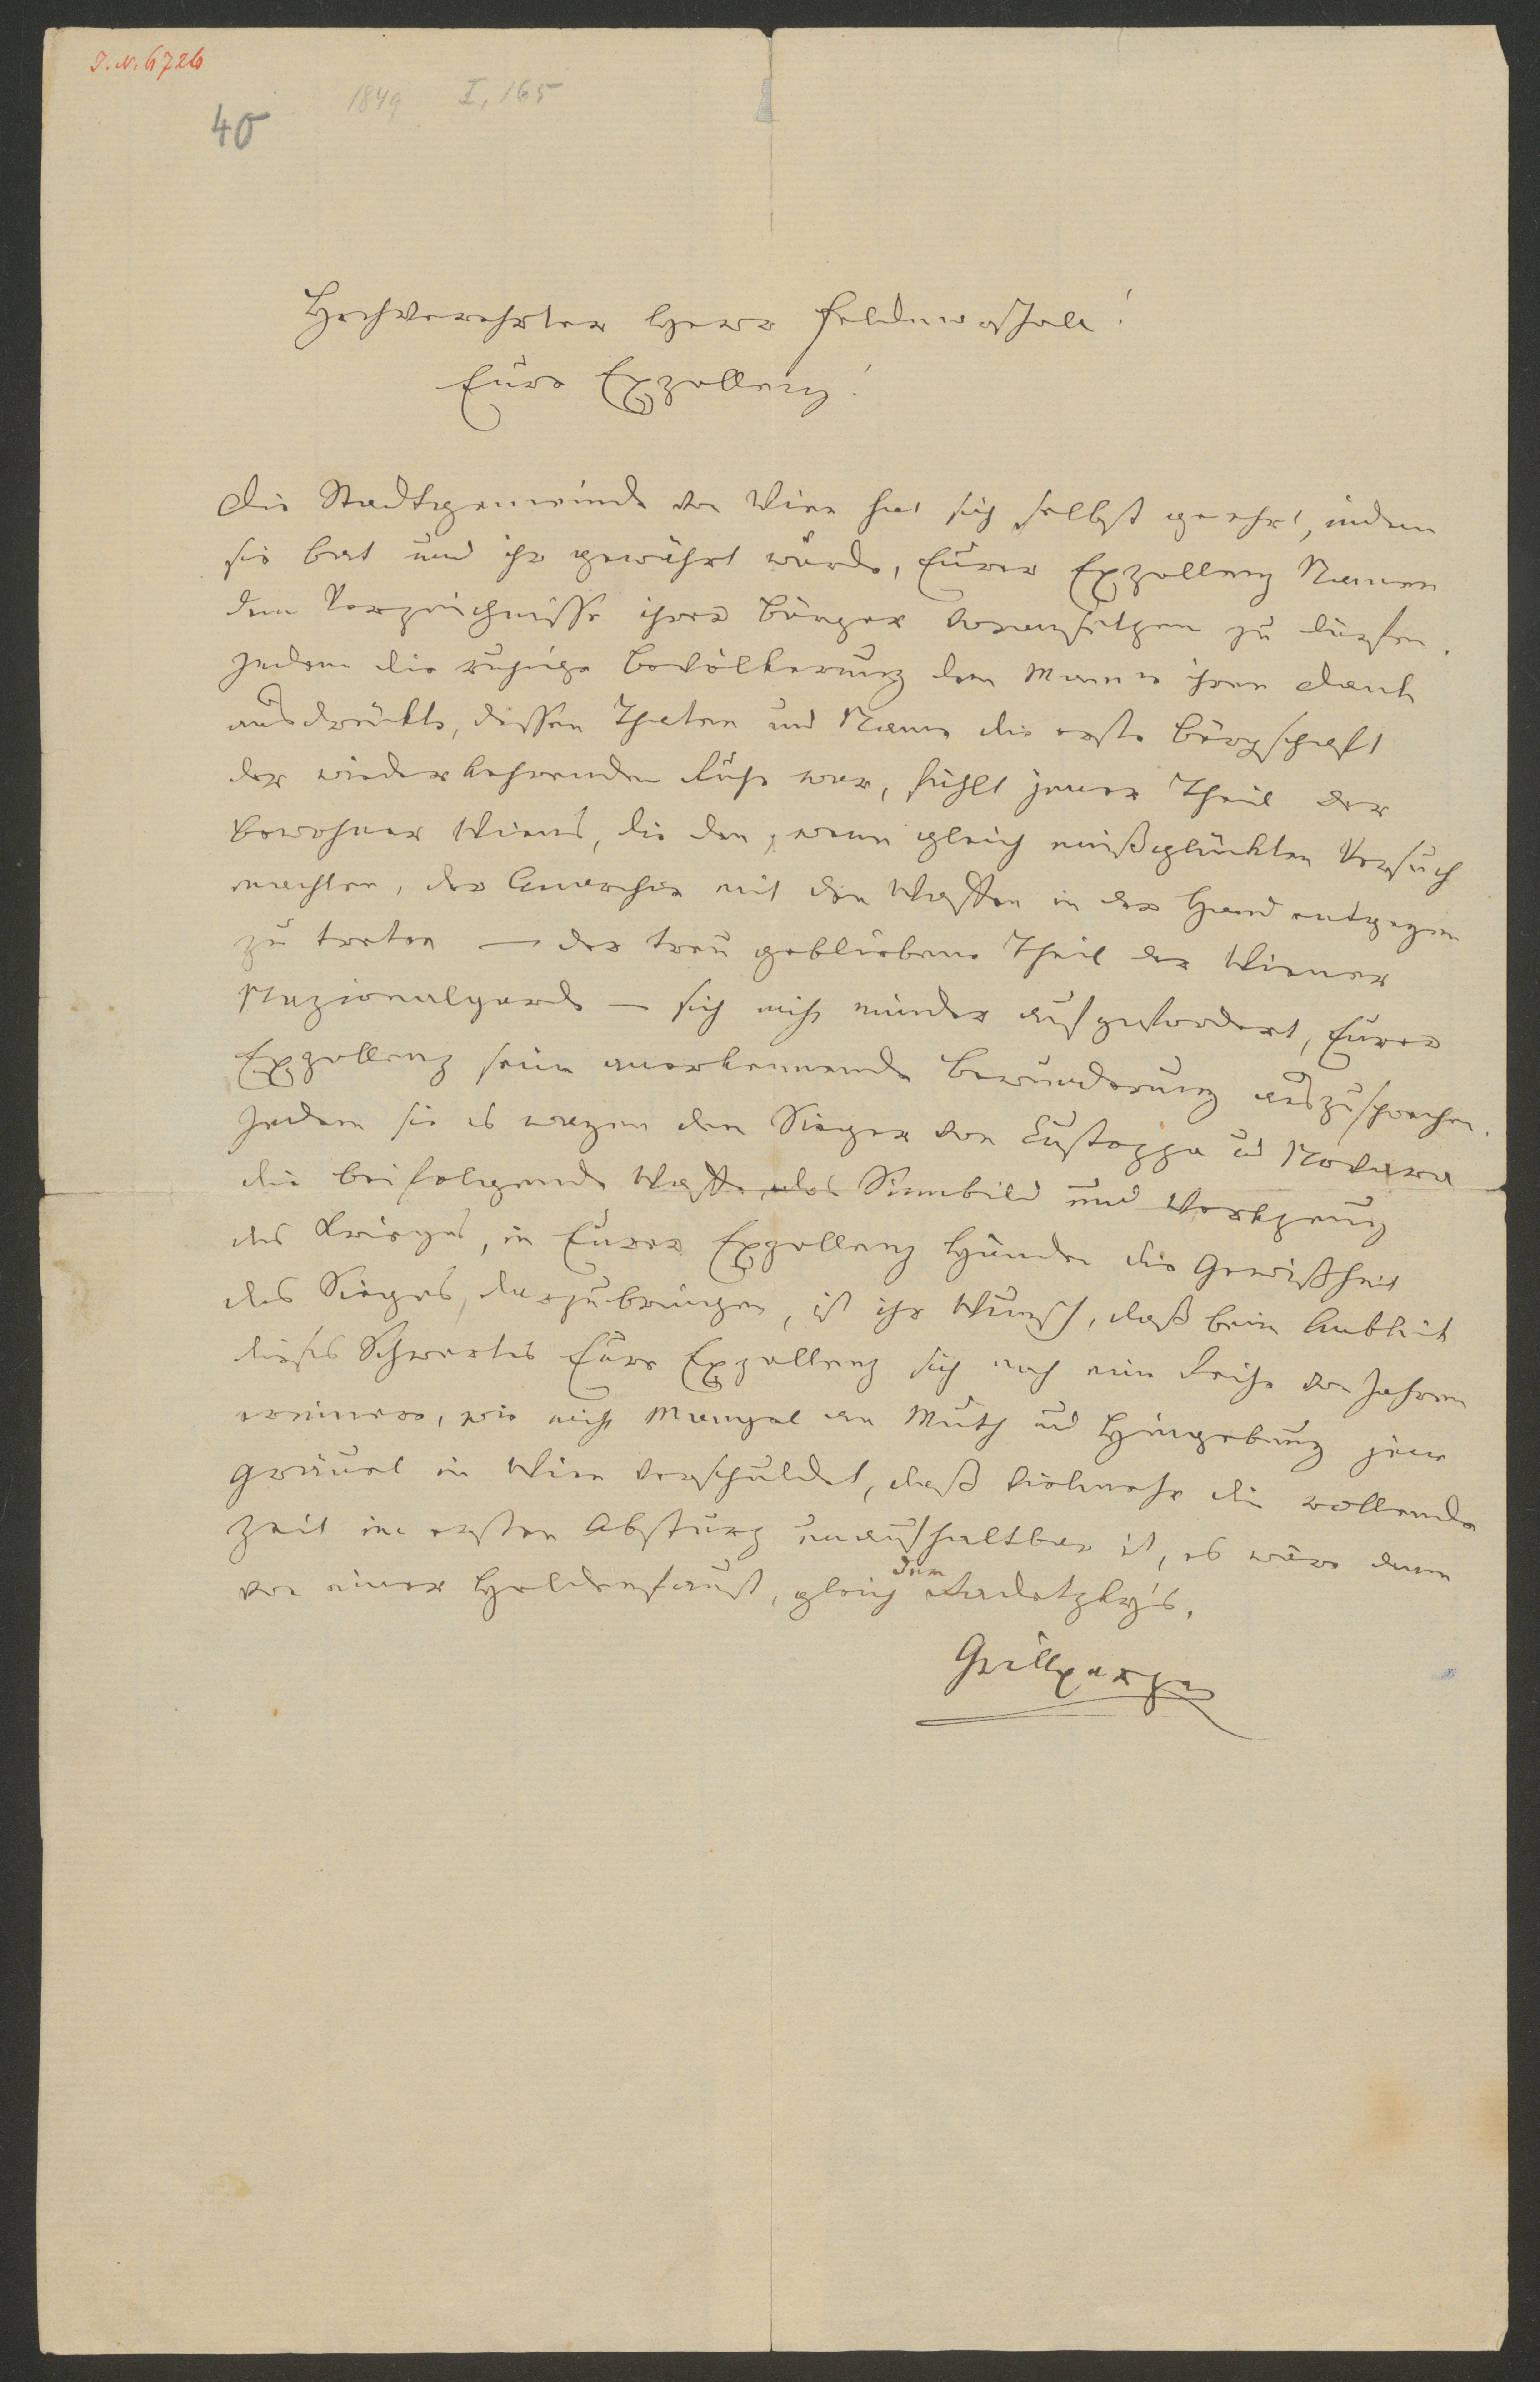 J. N. 6726
40
1849 I, 165
Hochverehrter Herr Feldmarschall!
Eure Exzellenz!
Die Stadtgemeinde von Wien hat sich selbst geehrt, indem
sie bat und ihr gewährt wurde, Eurer Exzellenz Namen
dem Verzeichnisse ihrer Bürger voransetzen zu dürfen.
Indem die ruhige Bevölkerung dem Manne ihren Dank
ausdrückte, dessen Thaten und Name die erste Bürgschaft
der wiederkehrenden Ruhe war, fühlt jener Theil der
Bewohner Wiens, die den, wenn gleich mißglückten Versuch
machten, der Anarchie mit den Waffen in der Hand entgegen
zu treten – der treu gebliebene Theil der Wiener
Nazionalgarde – sich nicht minder aufgefordert, Eurer
Exzellenz seine anerkennende Bewunderung auszusprechen.
Indem sie es wagen dem Sieger von Custozza und Novara
die beifolgende Waffe, das Sinnbild und Werkzeug
des Krieges, in Eurer Exzellenz Händen die Gewißheit
des Sieges, darzubringen, ist ihr Wunsch, daß beim Anblick
dieses Schwertes Eure Exzellenz sich nach einer Reihe von Jahren
erinnern, wie nicht Mangel an Muth und Hingebung jene
Gräuel in Wien verschuldet, daß vielmehr die rollende
Zeit im ersten Absturz unaufhaltbar ist, es wäre denn
von einer Heldenfaust, gleich der Radetzky's.
Grillparzer